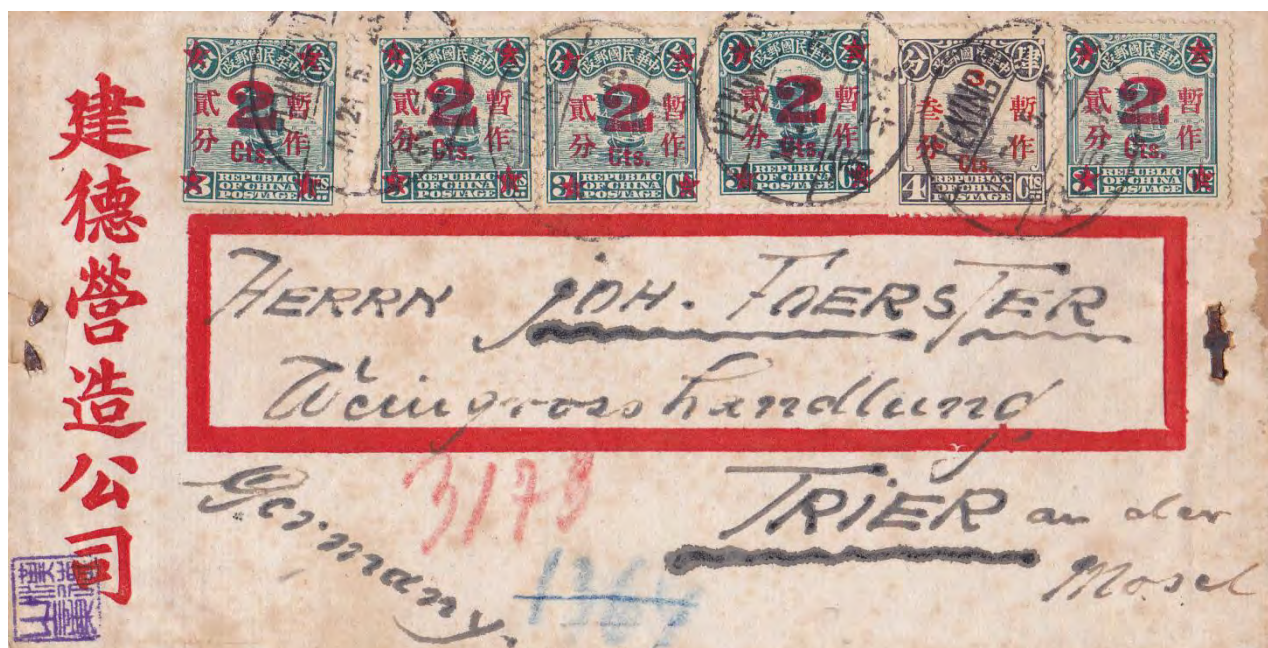 中華民國郵政
暫作
貳分
2
Cts.
REPUBLIC
OF CHINA
POSTAGE
中華民國郵政
暫作
貳分
2
Cts.
3
REPUBLIC
OF CHINA
POSTAGE
中華民國郵政
暫作
貳分
2
Cts.
3
REPUBLIC
OF CHINA
POSTAGE
中華民國郵政
暫作
貳分
2
Cts.
REPUBLIC
OF CHINA
POSTAGE
中華民國郵政
肆分
暫作
叁分
Cts.
4 Cts
REPUBLIC
OF CHINA
POSTAGE
PEKING
中華民國郵政
暫作
貳分
2
Cts.
REPUBLIC
OF CHINA
POSTAGE
建德營造公司
HERRN JOH. FOERSTER
Weingrosshandlung
TRIER an der
Mosel
Germany.
3173